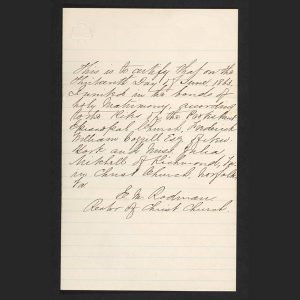 This is to certify that on the
Day of June, 186
I united in the bonds of
holy Matrimony, according
to the Rites of the Protestant
Episcopal Church, Frederick
William Esq of New
York and Miss Julia
Mitchell of Richmond, Va
in Christ Church, Norfolk
Va
E. M. Rodman
Rector of Christ Church.